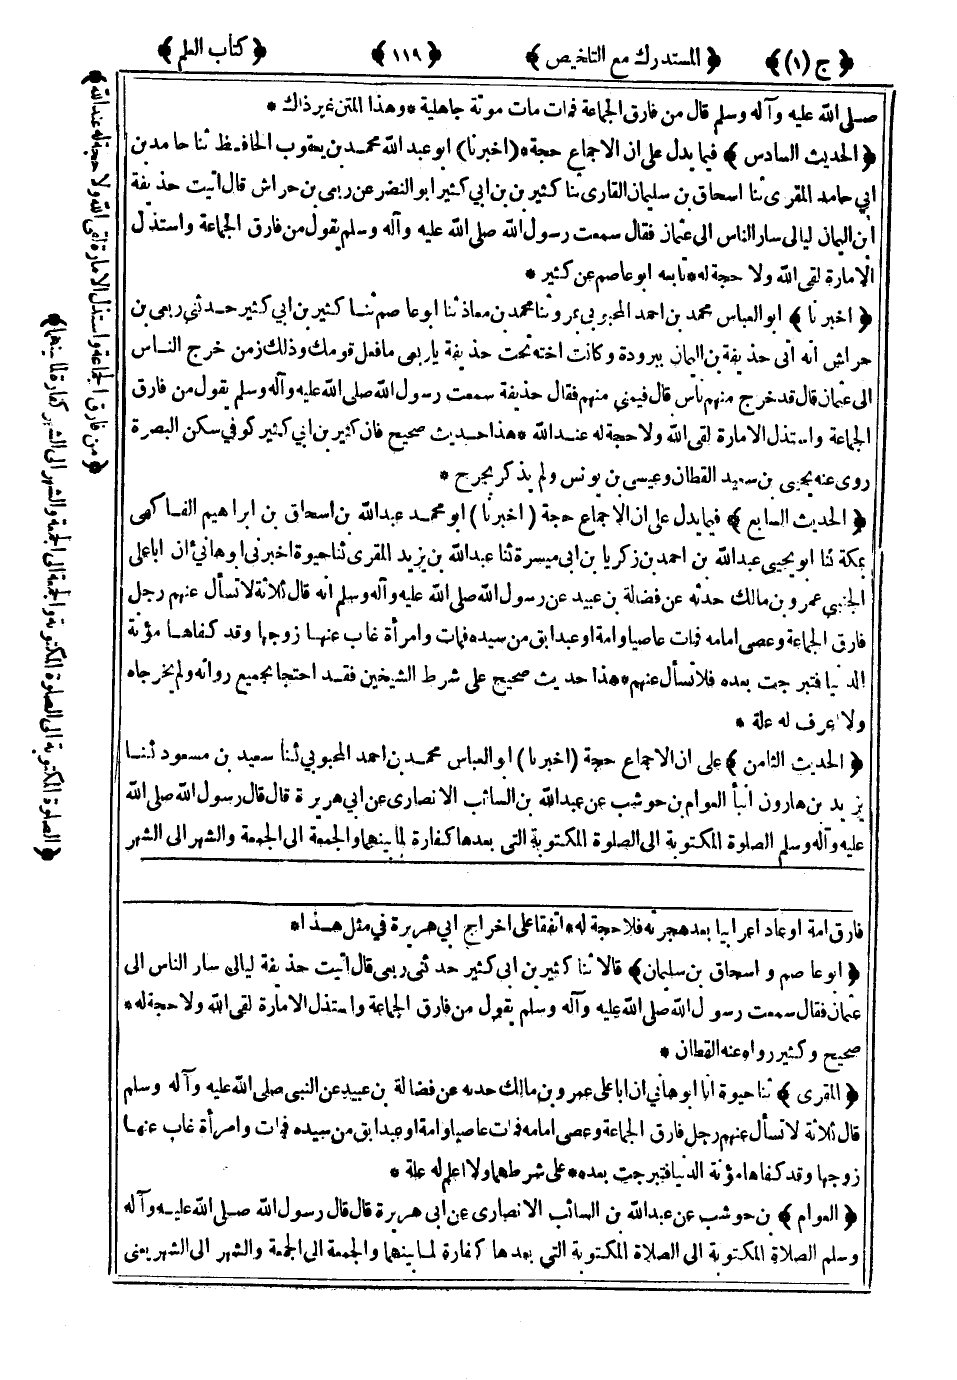 ﴿ ج (١) ﴾ ﴿ المستدرك مع التلخيص ﴾ ﴿ ١١٩ ﴾ ﴿ كتاب العلم ﴾
صلى الله عليه وآله وسلم قال من فارق الجماعة فمات مات موتة جاهلية * وهذا المتن غير ذاك *
﴿ الحديث السادس ﴾ فيما يدل على ان الاجماع حجة * (اخبرنا) ابو عبد الله محمد بن يعقوب الحافظ ثنا حامد بن
ابي حامد المقرى ثنا اسحاق بن سليمان القارى ثنا كثير بن بن ابي كثير ابو النضر عن ربعى بن حراش قال اتيت حذيفة
ابن اليمان ليالى سار الناس الى عثمان فقال سمعت رسول الله صلى الله عليه وآله وسلم يقول من فارق الجماعة واستذل
الامارة لقى الله ولا حجة له * تابعه ابو عاصم عن كثير *
﴿ اخبرنا ﴾ ابو العباس محمد بن احمد المحبوبي بمرو ثنا محمد بن معاذ ثنا ابو عاصم ثنا كثير بن ابي كثير حدثني ربعى بن
حراش انه اتى حذيفة بن اليمان ببرودة وكانت اخته تحت حذيفة ياربعى مافعل قومك وذلك زمن خرج الناس
الى عثمان قال قد خرج منهم ناس قال فيمنى منهم فقال حذيفة سمعت رسول الله صلى الله عليه وآله وسلم يقول من فارق
الجماعة واستذل الامارة لقى الله ولا حجة له عند الله * هذا حديث صحيح فان كثير بن ابي كثير كوفي سكن البصرة
روى عنه يحيى بن سعيد القطان وعيسى بن يونس ولم يذكر بجرح *
﴿ الحديث السابع ﴾ فيما يدل على ان الاجماع حجة (اخبرنا) ابو محمد عبد الله بن اسحاق بن ابراهيم الفاكهى
بمكة ثنا ابو يحيى عبد الله بن احمد بن زكريا بن ابى ميسرة ثنا عبد الله بن يزيد المقرى ثنا حيوة اخبرنى ابو هانئ ان اباعلى
الجنبي عمرو بن مالك حدثه عن فضالة بن عبيد عن رسول الله صلى الله عليه وآله وسلم انه قال ثلاثة لا تسأل عنهم رجل
فارق الجماعة وعصى امامه فمات عاصيا وامة او عبد ابق من سيده فمات وامرأة غاب عنها زوجها وقد كفاها مؤنة
الدنيا فتبرجت بعده فلا تسأل عنهم * هذا حديث صحيح على شرط الشيخين فقد احتجا بجميع رواته ولم يخرجاه
ولا اعرف له علة *
﴿ الحديث الثامن ﴾ على ان الاجماع حجة (اخبرنا) ابو العباس محمد بن احمد المحبوبي ثنا سعيد بن مسعود ثنا
يزيد بن هارون انبأ العوام بن حوشب عن عبد الله بن السائب الانصارى عن ابي هريرة قال قال رسول الله صلى الله
عليه وآله وسلم الصلوة المكتوبة الى الصلوة المكتوبة التى بعدها كفارة لما بينهما والجمعة الى الجمعة والشهر الى الشهر
فارق امة او عاد اعرابيا بعد هجرته فلا حجة له * اتفقا على اخراج ابي هريرة في مثل هذا *
﴿ ابو عاصم و اسحاق بن سليمان ﴾ قالا ثنا كثير بن ابي كثير حدثنى ربعى قال اتيت حذيفة ليالى سار الناس الى
عثمان فقال سمعت رسول الله صلى الله عليه وآله وسلم يقول من فارق الجماعة واستذل الامارة لقى الله ولا حجة له *
صحيح وكثير رواه عنه القطان *
﴿ المقرى ﴾ ثنا حيوة انا ابو هاني ان اباعلى عمرو بن مالك حدثه عن فضالة بن عبيد عن النبى صلى الله عليه وآله وسلم
قال ثلاثة لا تسأل عنهم رجل فارق الجماعة وعصى امامه فمات عاصيا وامة او عبد ابق من سيده فمات وامرأة غاب عنها
زوجها وقد كفاها مؤنة الدنيا فتبرجت بعده * على شرطهما ولا اعلم له علة *
﴿ العوام ﴾ بن حوشب عن عبد الله بن السائب الانصارى عن ابى هريرة قال قال رسول الله صلى الله عليه وآله
وسلم الصلاة المكتوبة الى الصلاة المكتوبة التي بعدها كفارة لما بينهما والجمعة الى الجمعة والشهر الى الشهر يعنى
﴿ من فارق الجماعة واستذل الامارة لقى الله ولا حجة له عند الله ﴾
﴿ الصلوة المكتوبة الى الصلوة المكتوبة والجمعة الى الجمعة والشهر الى الشهر كفارة لما بينهما ﴾